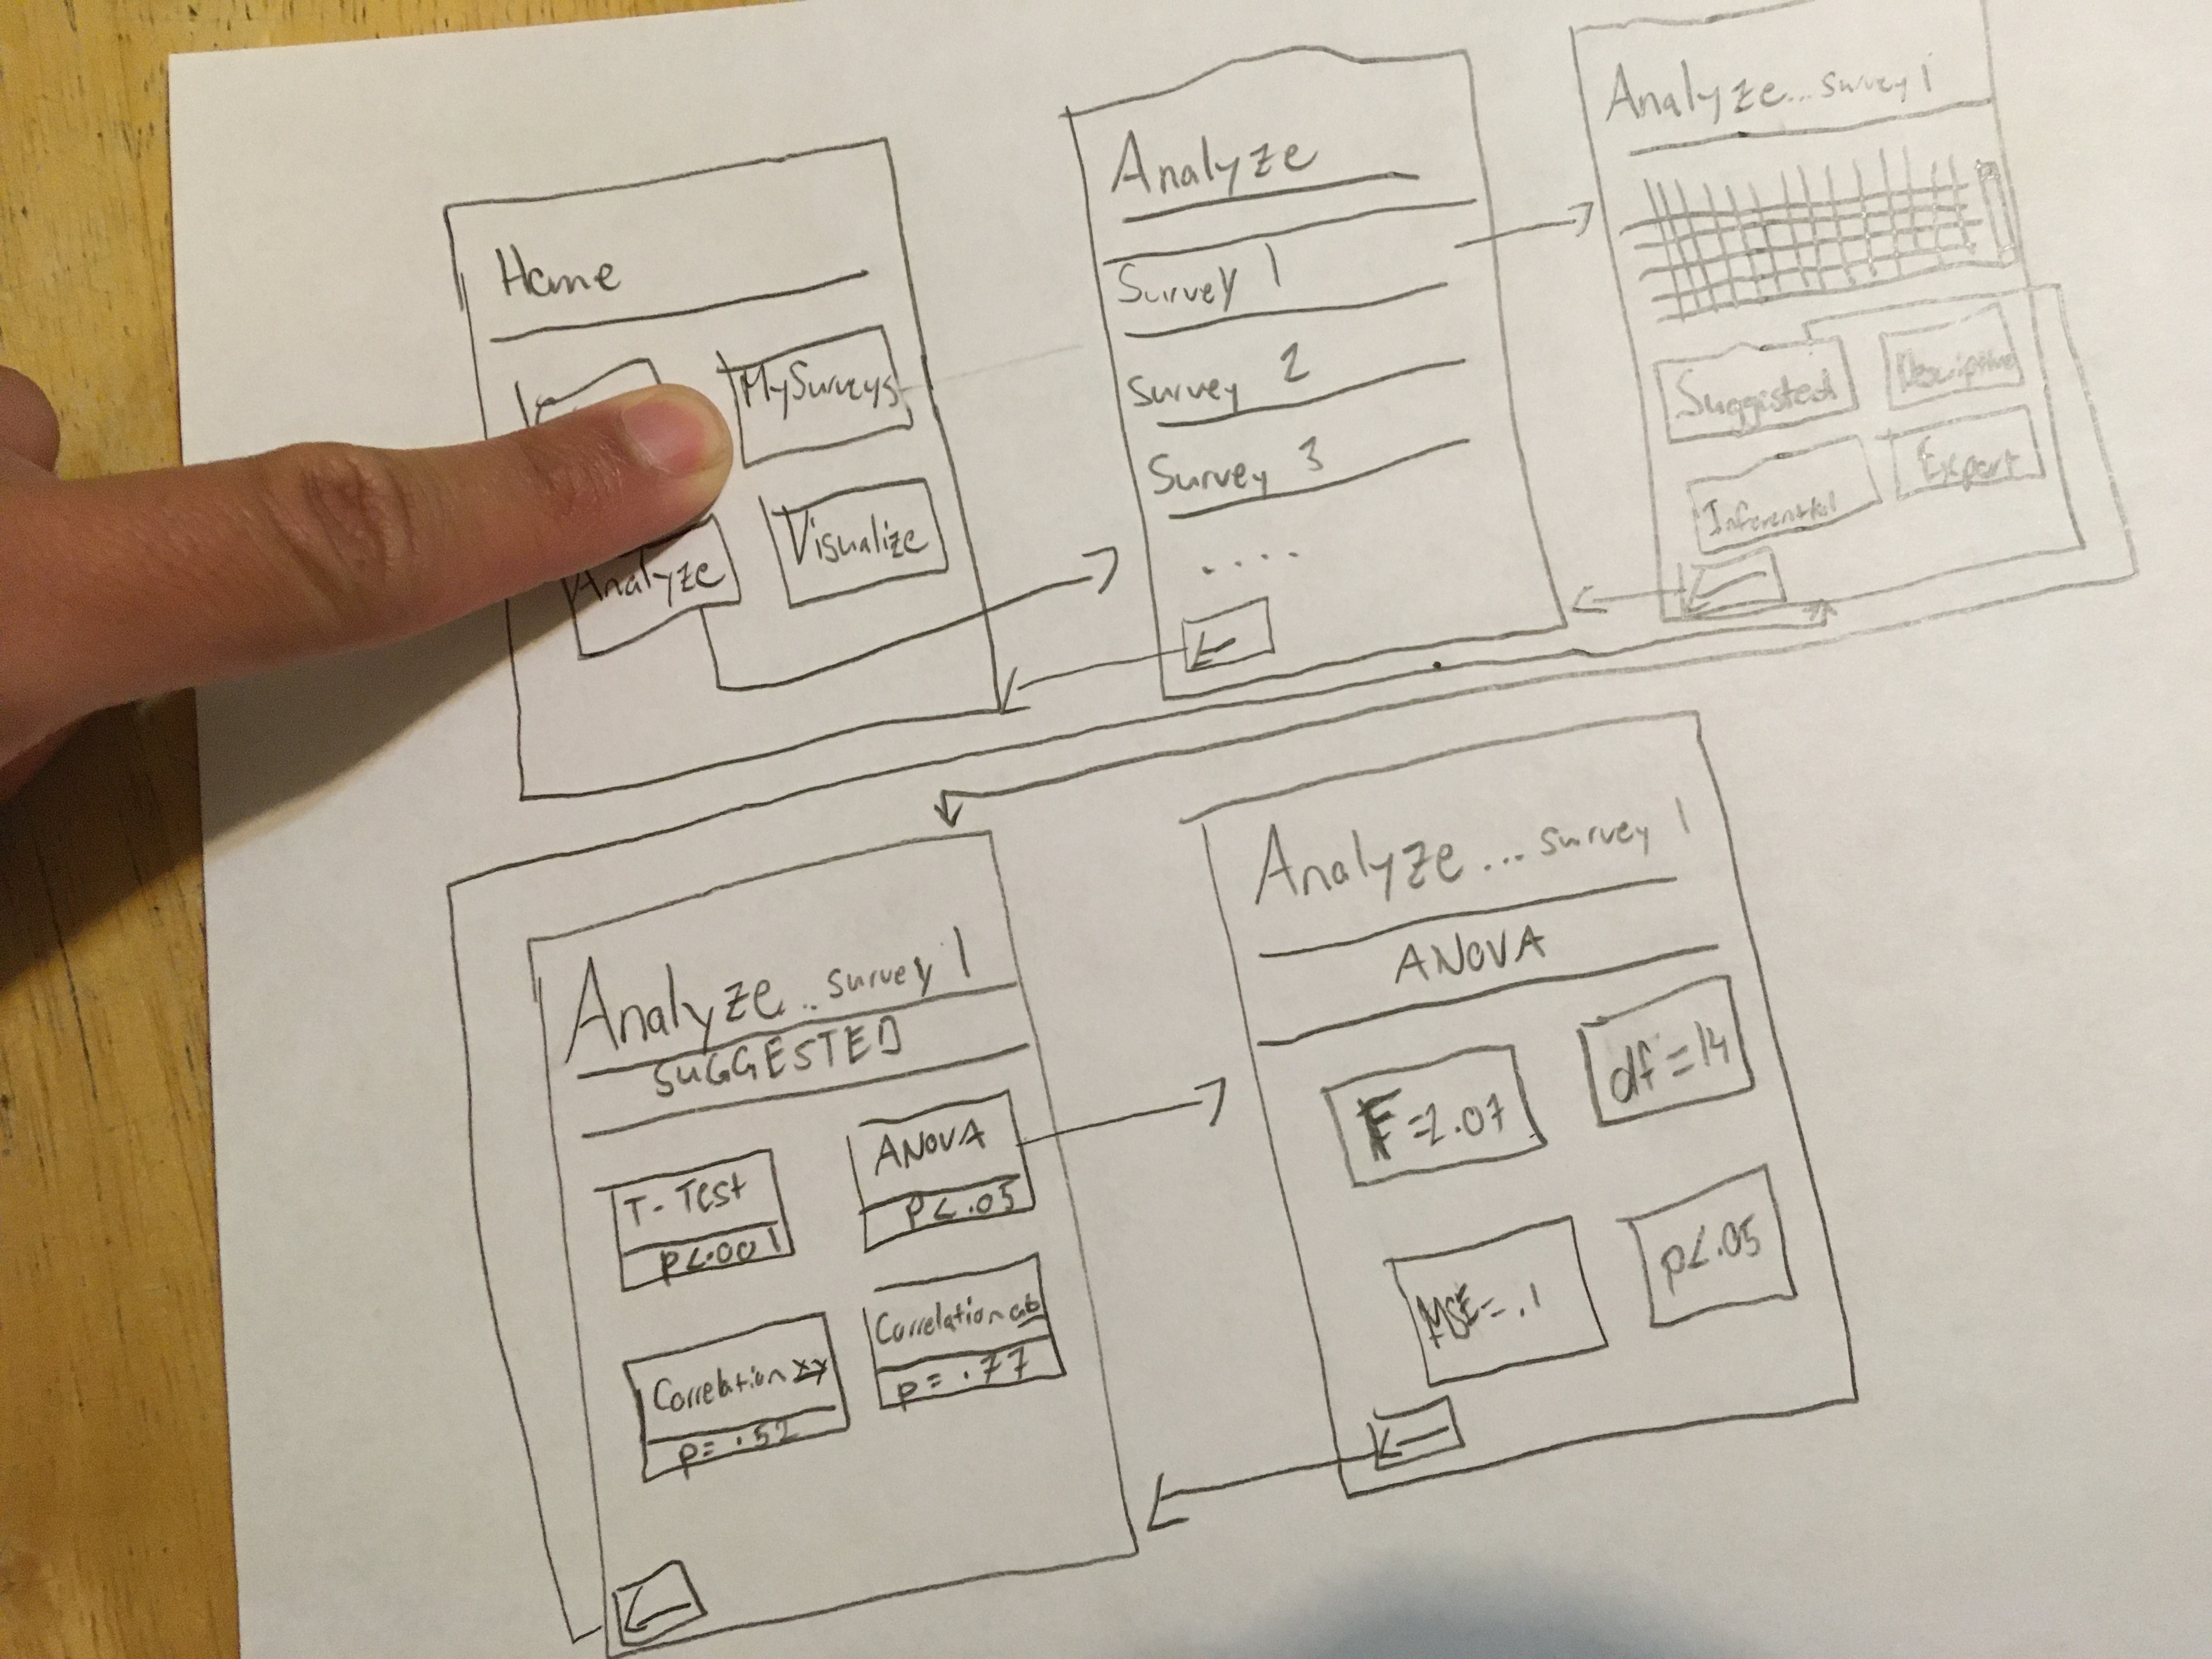 Home
MySurveys
Analyze
Visualize
Analyze
Survey 1
Survey 2
Survey 3
....
Analyze... survey 1
Suggisted
Descriptive
Inferential
Export
Analyze.. survey 1
SUGGESTED
T-Test
p<.001
ANOVA
p<.05
Correlation xy
p= .52
Correlation ab
p= .77
Analyze... survey 1
ANOVA
F=2.07
df=14
MSE=.1
p<.05